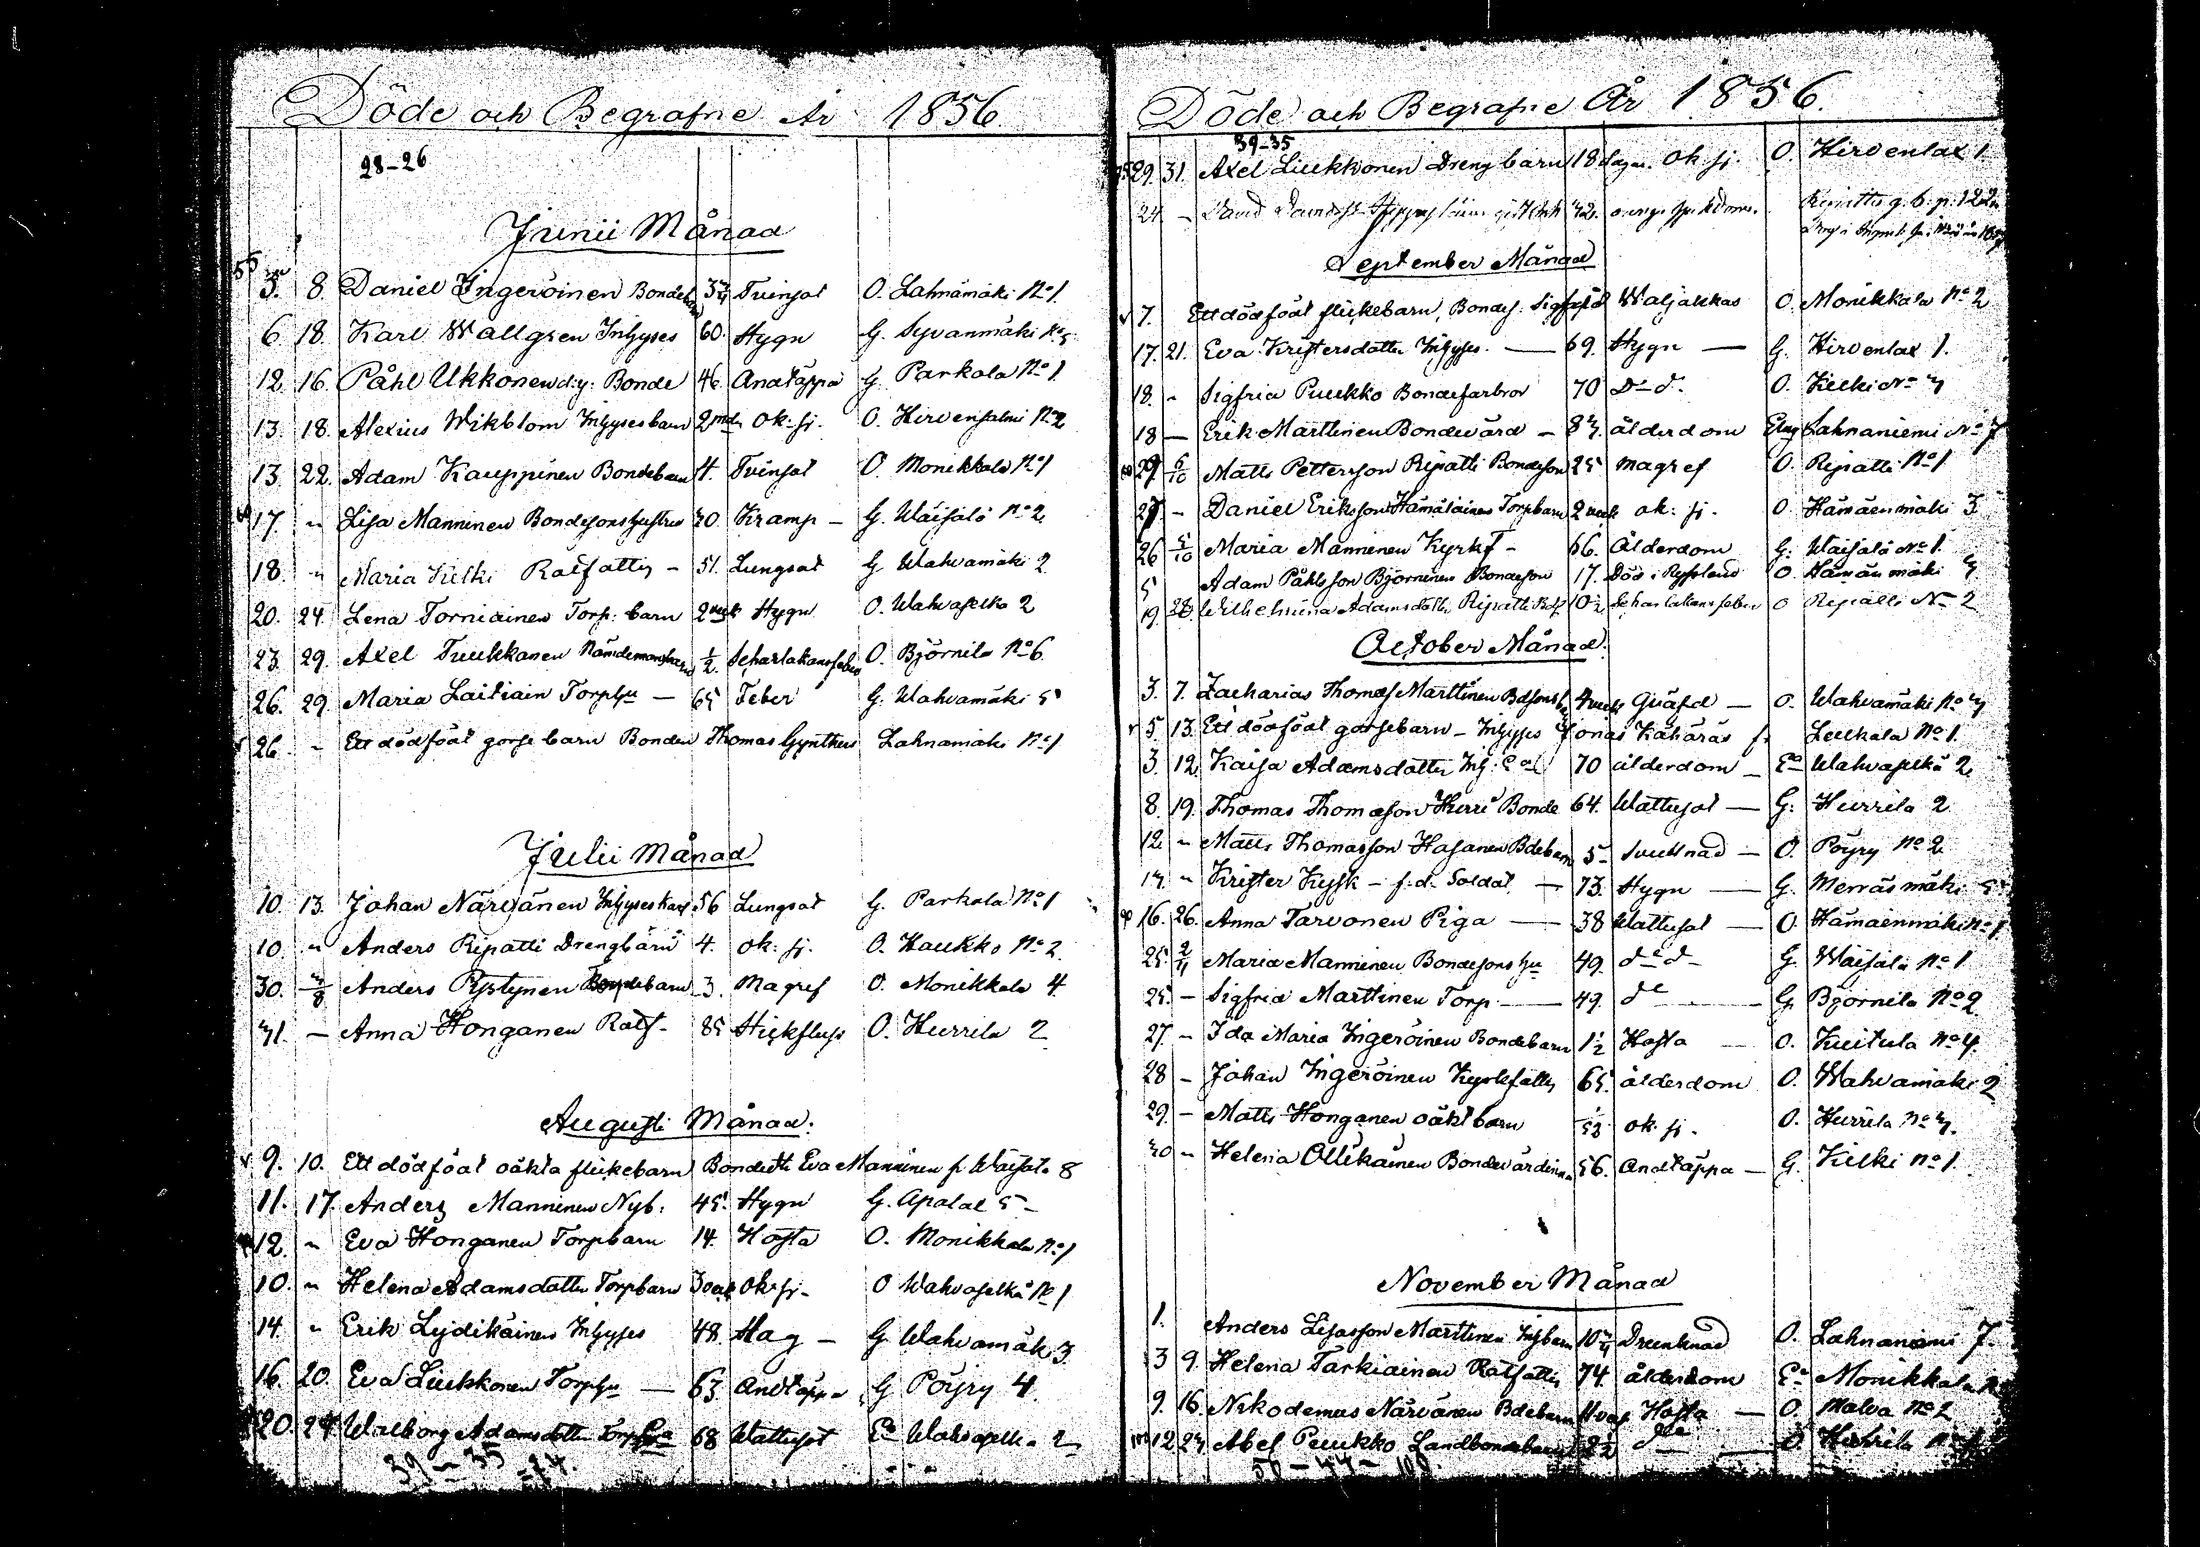 Döde och Begrafne År 1856
28-26
Junii Månad
3. 8. Daniel Ingeröinen Bondebarn 3 3/4 Tvinsot O. Lahnamäki No 1
6. 18. Karl Wallgren Inhyses 60. Stygn G. Syvänmäki No 5
12. 16. Påhl Ukkonen d:y: Bonde 46. Andtäppa G. Parkola No 1
13. 18. Alexius Wikblom Inhysesbarn 2 mdr ok: sj. O. Hirvensalmi No 2
13. 22. Adam Kauppinen Bondebarn 4. Tvinsot O. Monikkala No 1
17. " Lisa Manninen Bondesons hustru 30. Kramp - G. Wäisälä No 2
18. " Maria Kilki Rotfattig - 51. Lungsot G. Wahvamäki 2
20. 24. Lena Torniainen Torp: barn 2 veck Stygn O. Wahvaselkä 2
23. 29. Axel Tuukkanen Nämdemansbarn 1/2 Scharlakansfeber O. Björnilä No 6
26. 29. Maria Laitiain Torphu - 65 Feber G. Wahvamäki 5
26. - Ett dödfödt gosse barn Bonden Thomas Gynthers Lahnamäki No 1
Julii Månad
10. 13. Johan Närvänen Inhyseskarl 56 Lungsot G. Parkola No 1
10. " Anders Ripatti Drengbarn 4. ok: sj. O. Kaukko No 2.
30. 3/8 Anders Pystynen Bondebarn 3. Magref O. Monikkala 4
31. - Anna Honganen Rotf- 85 Stickfluss O. Hurrila 2
Augusti Månad.
9. 10. Ett dödfödt oäkta flickebarn Bondedtr Eva Manninen fr Wäisälä 8
11. 17. Anders Manninen Nyb: 45. Stygn G. Apalax 5 -
12. " Eva Honganen Torpbarn 14. Hosta O. Monikkala No 1
10. " Helena Adamsdotter Torpbarn 3 veck ok: sj. O Wahvaselkä No 1
14. " Erik Lydikäinen Inhyses 48. Slag - G Wahvamäk 3.
16. 20. Eva Liukkonen Torphu - 63 Andtäppa G Pöyry 4
20. 24 Walborg Adamsdotter Torphu 68 Wattusot Ea Wahvaselkä 2
39 - 35
Döde och Begrafne År 1856.
39-35
29. 31. Axel Liukkonen Drengbarn 18 dagar. ok. sj. O. Hirvenlax 1
24 - David Davidss. 42. Ripattis
September Månad
7. Ett dödfödt flickebarn, Bondes: Sigfrid Waljakkas O. Monikkala No 2
17. 21. Eva Kristersdotter Inhyses. - 69. Stygn - G. Hirvenlax 1.
18. " Sigfrid Puukko Bondefarbror 70 Do do O. Kilki No 3
18 - Erik Marttinen Bondevärd - 83. ålderdom Enkl. Lahnaniemi No 7
29 5/10 Matts Pettersson Ripatti Bondeson 25 magref O. Ripatti No 1
27 - Daniel Eriksson Hämäläinen Torpbarn 2 veck ok: sj. O. Hämäenmäki 3
26 5/10 Maria Manninen Kyrkf - 66. Ålderdom G. Wäisälä No 1.
5 Adam Påhlsson Björninen Bondeson 17. Död i Ryssland O. Hämänmäki 3
19 28. Wilhelmina Adamsdotter Ripatti 10 1/2 Scharlakansfeber O Ripatti No 2
October Månad.
3. 7. Zacharias Thomass Marttinen 4 veck Qväfd - O. Wahvamäki No 3
5. 13. Ett dödfödt gossebarn - Inhyses Jonas Kähäräs fr Leikola No 1.
3. 12. Kaisa Adamsdotter Inh: 70 ålderdom - Ea Wahvaselkä 2.
8. 19. Thomas Thomasson Hurri Bonde 64. Wattusot - G: Hurrila 2
12. " Matts Thomasson Hasanen Bdebarn 5 - Svullnad - O. Pöyry No 2
13. " Krister Kysk - f.d. Soldat - 73. Stygn - G. Merrasmäki 5
16. 26. Anna Tarvonen Piga - 38 Wattusot - O. Hämäenmäki No 1
25. 2/11 Maria Manninen Bondesons hu 49. do do G. Wäisälä No 1
25. - Sigfrid Marttinen Torp - 49. do - G. Björnilä No 2
27. - Ida Maria Ingeröinen Bondebarn 1 1/2 Hosta - O. Kuitula No 4.
28 - Johan Ingeröinen Kyrkfattig 65. ålderdom O. Wahvamäki 2
29. - Matts Honganen oäkt barn ok: sj. O. Hurrila No 3.
30 - Helena Ollikainen Bondevärdinna 56. Andtäppa - G. Kilki No 1.
November Månad
1. Anders Lisasson Marttinen Inhbarn 10 3/4 Drunknad O. Lahnaniemi 7.
3 9. Helena Tarkiainen Rotfattig 74. ålderdom Ea Monikkala
9. 16. Nikodemus Närvänen Bdebarn Hosta - O. Malva No 2
12 23 Abel Puukko Landbondebarn 2 1/2 do - O. Hurrila